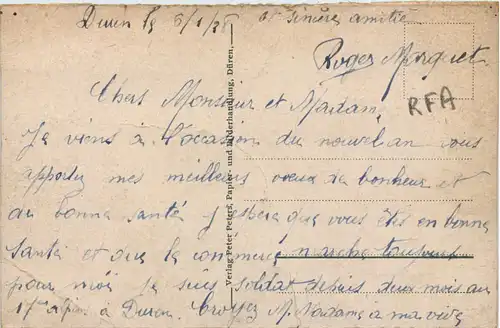 Duren le 5/1/28
et sincères amitié
Roger Morquet
RFA
Chers Monsieur et Madam,
Je viens à l'occasion du nouvel an vous
apporter mes meilleurs vœux de bonheur et
de bonne santé j'espère que vous êtes en bonne
santé et que le commerce marche toujours
pour moi je suis soldat depuis deux mois au
à Duren. Croyez M. Madame a ma vive
Verlag Peter Peters, Papier- und Bilderhandlung, Düren.